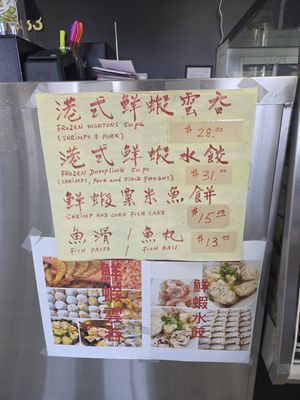 港式鮮蝦雲吞
FROZEN WONTONS 50 PC
(SHRIMPS & PORK)
$28.00
港式鮮蝦水餃
FROZEN DUMPLING 50 PC
(SHRIMPS, PORK and BLACK FUNGUS)
$31.00
鮮蝦粟米魚餅
SHRIMP AND CORN FISH CAKE
$15.00
魚滑 / 魚旦
FISH PASTE / FISH BALL
$13.00
鮮蝦雲吞
鮮蝦水餃